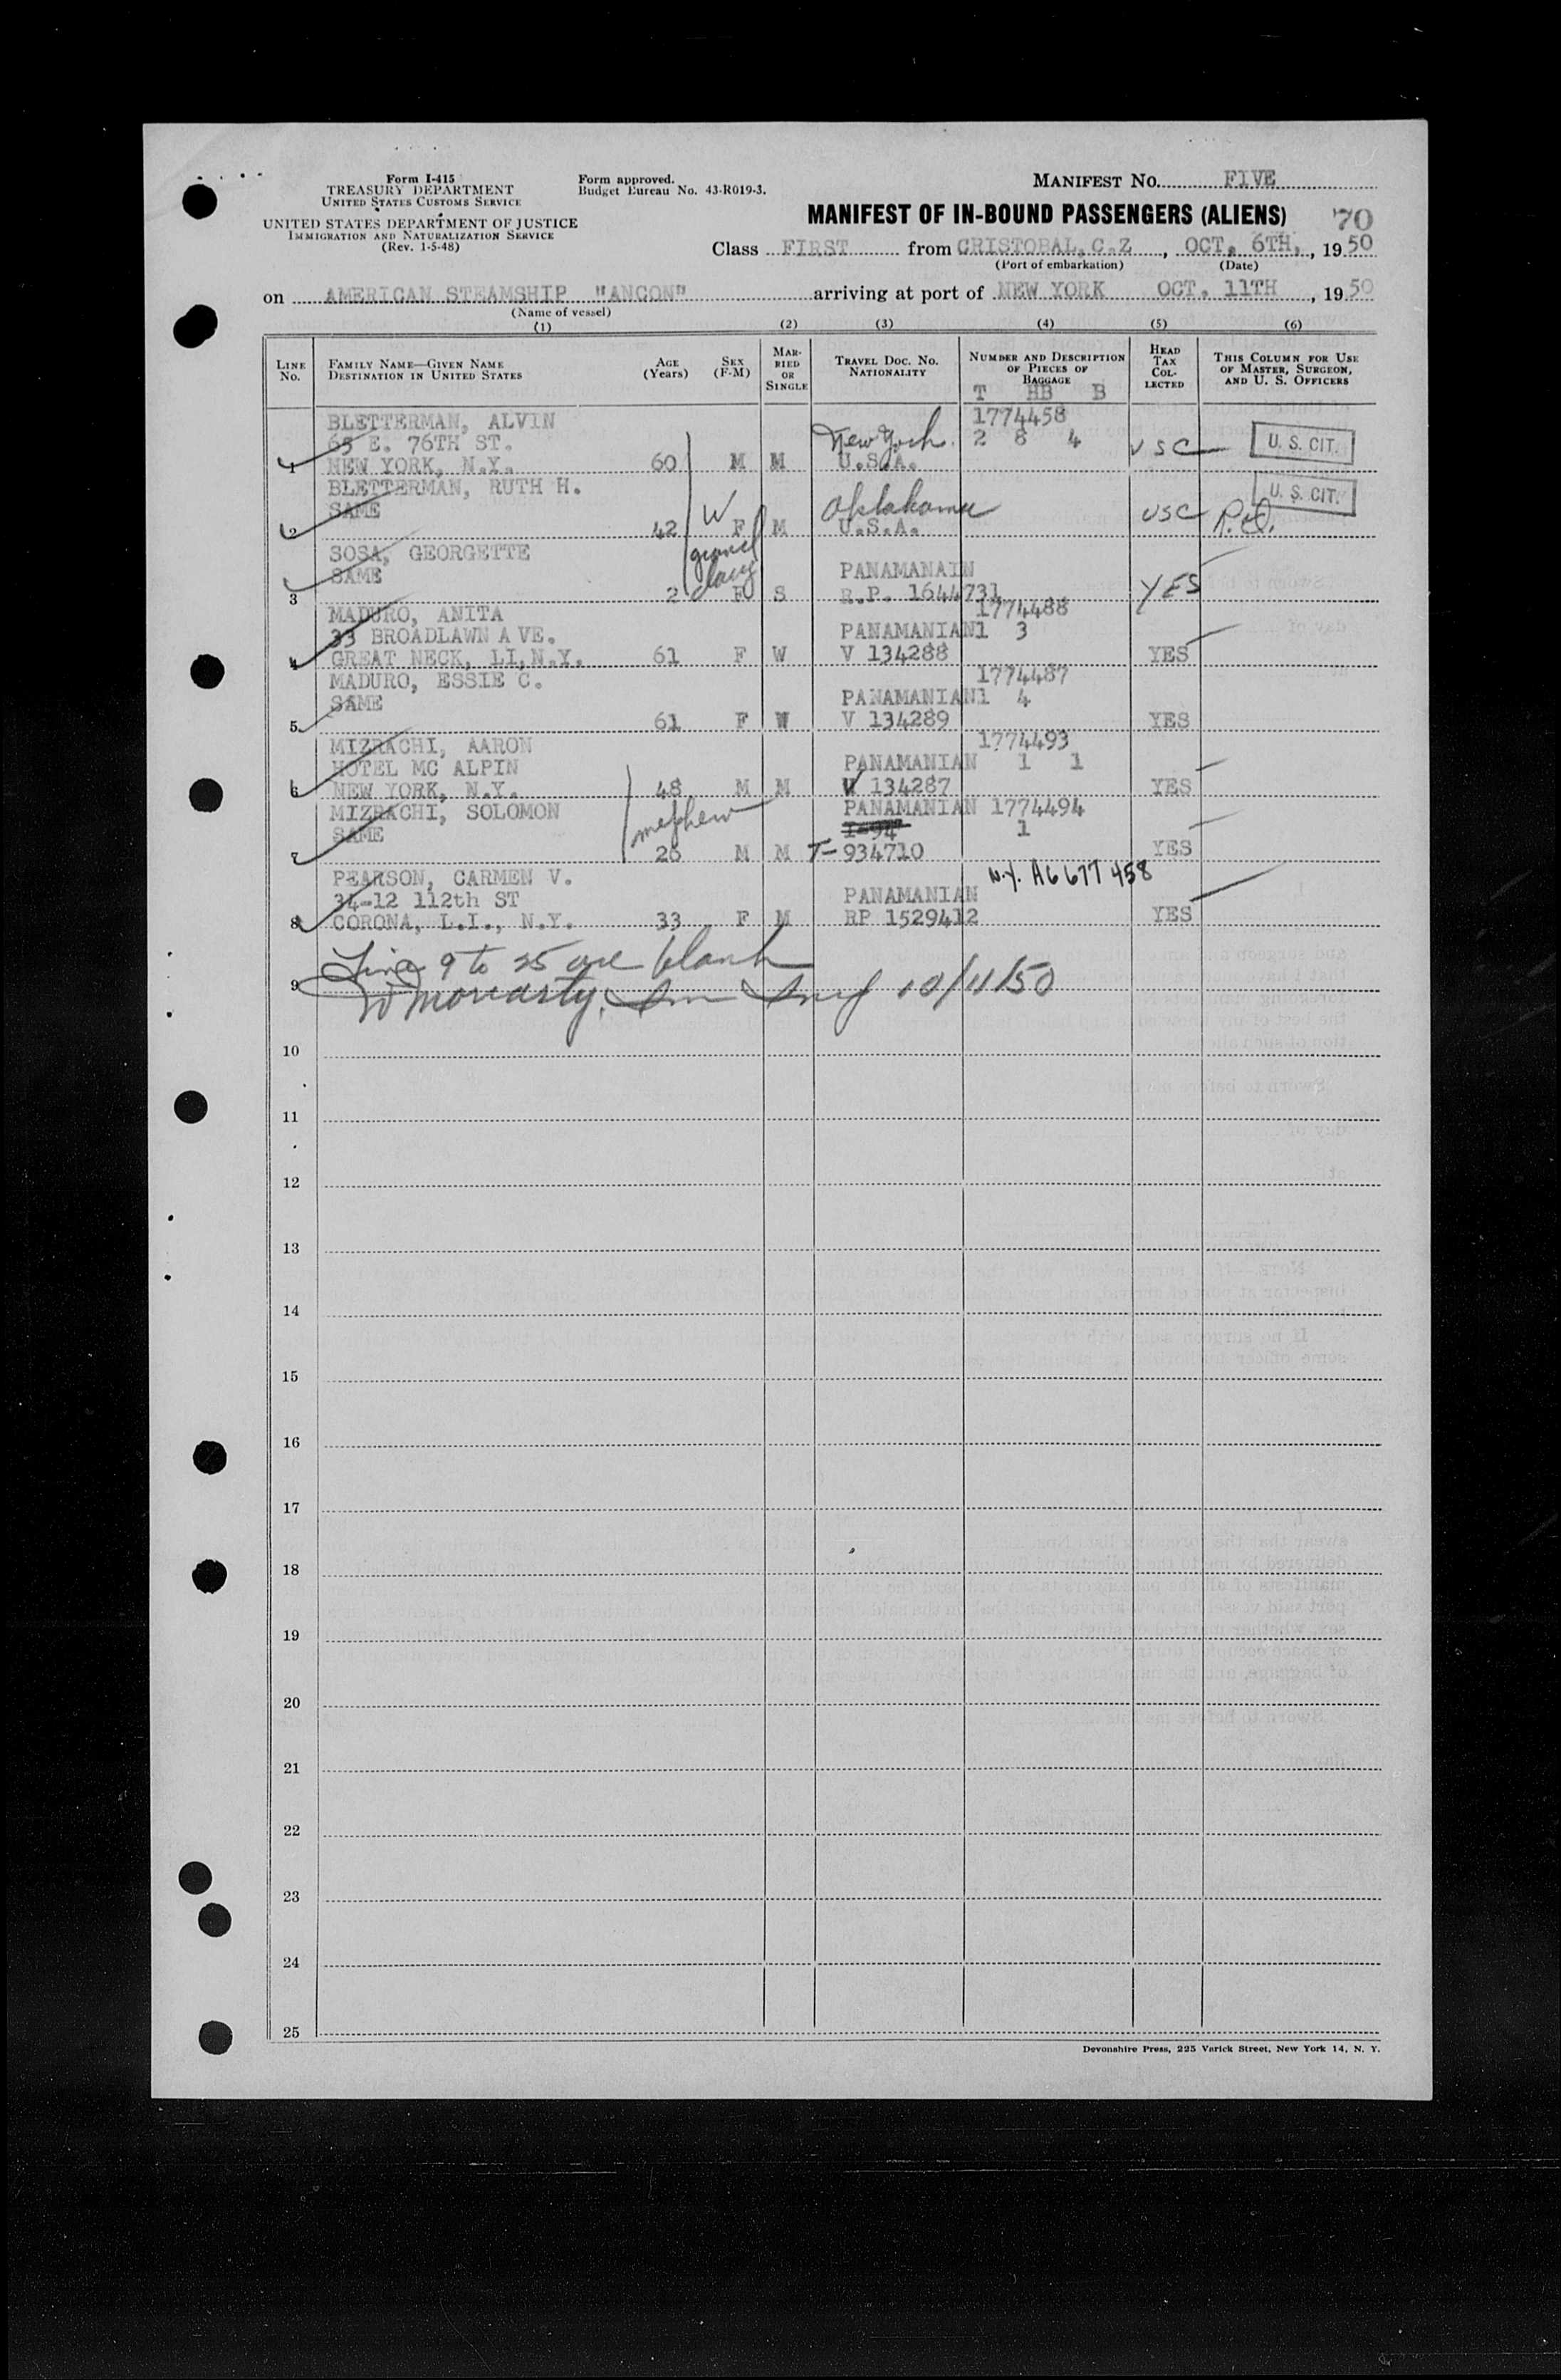 Form I-415
TREASURY DEPARTMENT
UNITED STATES CUSTOMS SERVICE
UNITED STATES DEPARTMENT OF JUSTICE
IMMIGRATION AND NATURALIZATION SERVICE
(Rev. 1-5-48)
Form approved.
Budget Bureau No. 43-R019-3.
MANIFEST NO. FIVE
MANIFEST OF IN-BOUND PASSENGERS (ALIENS) 70
Class FIRST from CRISTOBAL, C.Z., OCT. 6TH, 1950
(Port of embarkation) (Date)
on AMERICAN STEAMSHIP "ANCON" arriving at port of NEW YORK OCT. 11TH, 1950
(Name of vessel)
(1) (2) (3) (4) (5) (6)
LINE No. FAMILY NAME—GIVEN NAME DESTINATION IN UNITED STATES AGE (Years) SEX (F-M) MARRIED OR SINGLE TRAVEL DOC. NO. NATIONALITY NUMBER AND DESCRIPTION OF PIECES OF BAGGAGE HEAD TAX COLLECTED THIS COLUMN FOR USE OF MASTER, SURGEON, AND U. S. OFFICERS
T HB B
BLETTERMAN, ALVIN 1774458
65 E. 76TH ST. New York. 2 8 4
1 NEW YORK, N.Y. 60 M M U.S.A. USC U. S. CIT.
BLETTERMAN, RUTH H. U. S. CIT.
SAME W Oklahoma
2 42 F M U.S.A. USC
SOSA, GEORGETTE grand
SAME daug PANAMANAIN
3 2 F S R.P. 1644731 YES
MADURO, ANITA 1774488
33 BROADLAWN AVE. PANAMANIAN 1 3
4 GREAT NECK, LI, N.Y. 61 F W V 134288 YES
MADURO, ESSIE C. 1774487
SAME PANAMANIAN 1 4
5 61 F W V 134289 YES
MIZRACHI, AARON 1774493
HOTEL MC ALPIN PANAMANIAN 1 1
6 NEW YORK, N.Y. 48 M M V 134287 YES
MIZRACHI, SOLOMON nephew PANAMANIAN 1774494
SAME I-94 1
7 26 M M T- 934710 YES
PEARSON, CARMEN V. N.Y. A6 677 458
34-12 112th ST PANAMANIAN
8 CORONA, L.I., N.Y. 33 F M RP 1529412 YES
Line 9 to 25 are blank
9 W Moriarty, Imm Insp 10/11/50
10
11
12
13
14
15
16
17
18
19
20
21
22
23
24
25
Devonshire Press, 225 Varick Street, New York 14, N. Y.